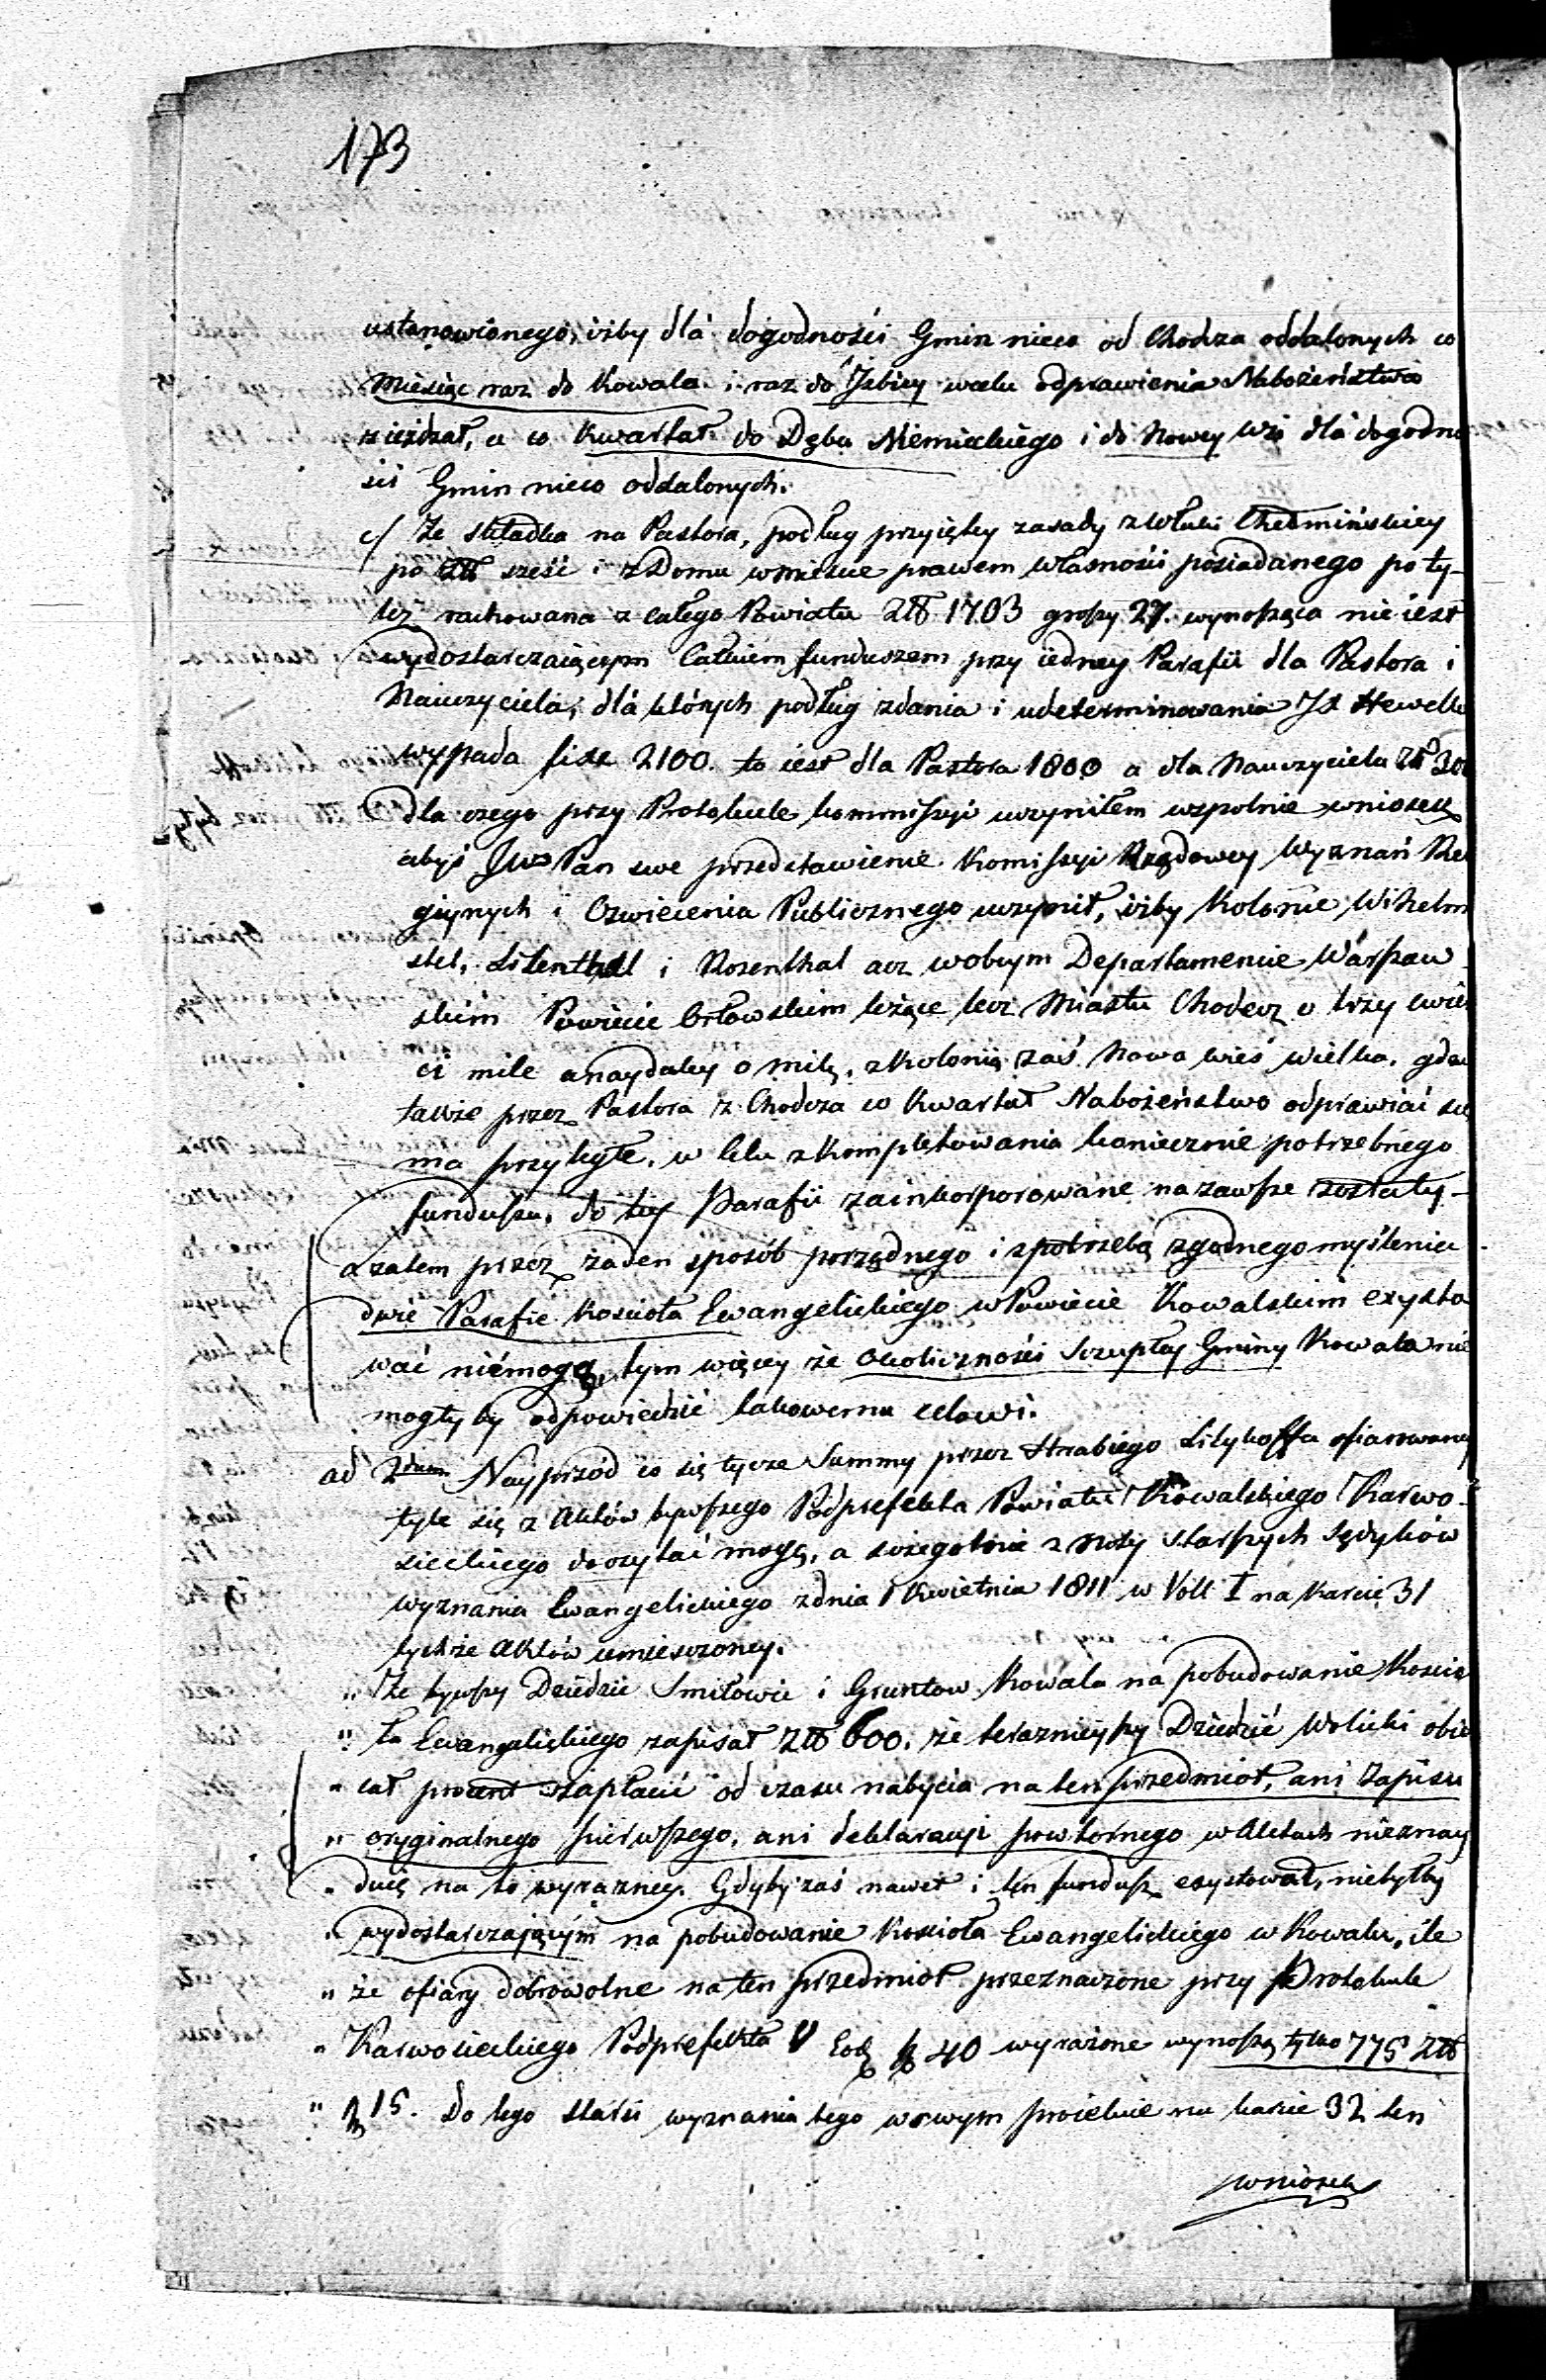 173
ustanowionego, iżby dla dogodności Gmin nieco od Chodcza oddalonych co
Miesiąc raz do Kowala i raz do Izbicy w celu odprawienia Nabożeństwa
zieżdżał, a co Kwartał do Dęba Niemieckiego i do Nowey wsi dla dogodno
ści Gmin nieco oddalonych.
c/ Że składka na Pastora, podług przyiętey zasady z włuki Chełmińskiey
po Złł sześć i z Domu w mieście prawem własności posiadanego po ty-
leż rachowana z całego Powiatu Złł 1703 groszy 27. wynosząca nie iest
wydostarczaiącym całkiem funduszem przy iedney Parafii dla Pastora i
Nauczyciela, dla których podług zdania i udeterminowania
wypada fixe 2100. to iest dla Pastora 1800 a dla Nauczyciela Złł 300
dla czego przy Protokule Kommissyi uczyniłem wspolnie wniosek
abyś JW Pan swe przedstawienie Komissyi Rządowey Wyznań Reli
giynych i Oświecenia Publicznego uczynił, iżby Kolonie Wilhelm
stel, Lilenthal i Rosenthal acz w obcym Departamencie Warszaw
skim Powiecie Orłowskim leżące lecz Miastu Chodecz o trzy ćwier
ci mile a naydaley o milę, z Kolonią zaś Nowa wieś wielka, gdzie
także przez Pastora z Chodcza co Kwartał Nabożeństwo odprawiać się
ma przyległe, w celu zkompletowania koniecznie potrzebnego
funduszu, do tey Parafii zainkorporowane na zawsze zostały-
a zatem przez żaden sposób porządnego i z potrzebą zgodnego myślenia
dwie Parafie Kościoła Ewangelickiego w Powiecie Kowalskim exysto
wać niemogą, tym więcey że okoliczności Szczupłey Gminy Kowala nie
mogłyby odpowiedzić takowemu celowi.
ad 2dum Nayprzód co się tycze Summy przez Hrabiego ofiarowaney
tyle się z Aktów bywszego Podprefekta Powiatu Kowalskiego Karwo-
sieckiego doczytać mogę, a szczegolnie z noty starszych Sędyków
wyznania Ewangelickiego z dnia 1 Kwietnia 1811 w Voll I na Karcie 31
tychże Aktów umiesczoney.
„ Że bywszy Dziedzic Smiłowic i Gruntow Kowala na pobudowanie Koscio
„ ła Ewangelickiego zapisał Złł 600. że teraznieyszy Dziedzic Wolicki obie
„ cał procent zapłacić od czasu nabycia na ten przedmiot, ani Zapisu
„ oryginalnego pierwszego, ani deklaracyi powtórnego w Aktach nieznay
„ duię na to wyrazney. Gdyby zaś nawet i ten fundusz exystował, niebyłby
„ wydostarczającym na pobudowanie Kościoła Ewangelickiego w Kowalu, ile
„ że ofiary dobrowolne na ten przedmiot przeznaczone przy Protokule
„ Karwosieckiego Podprefekta V 40 wyrażone wynoszą tylko 775 Złł
„ 15. Do tego starsi wyznania tego w swym proiekcie na karcie 32 ten
wniosek